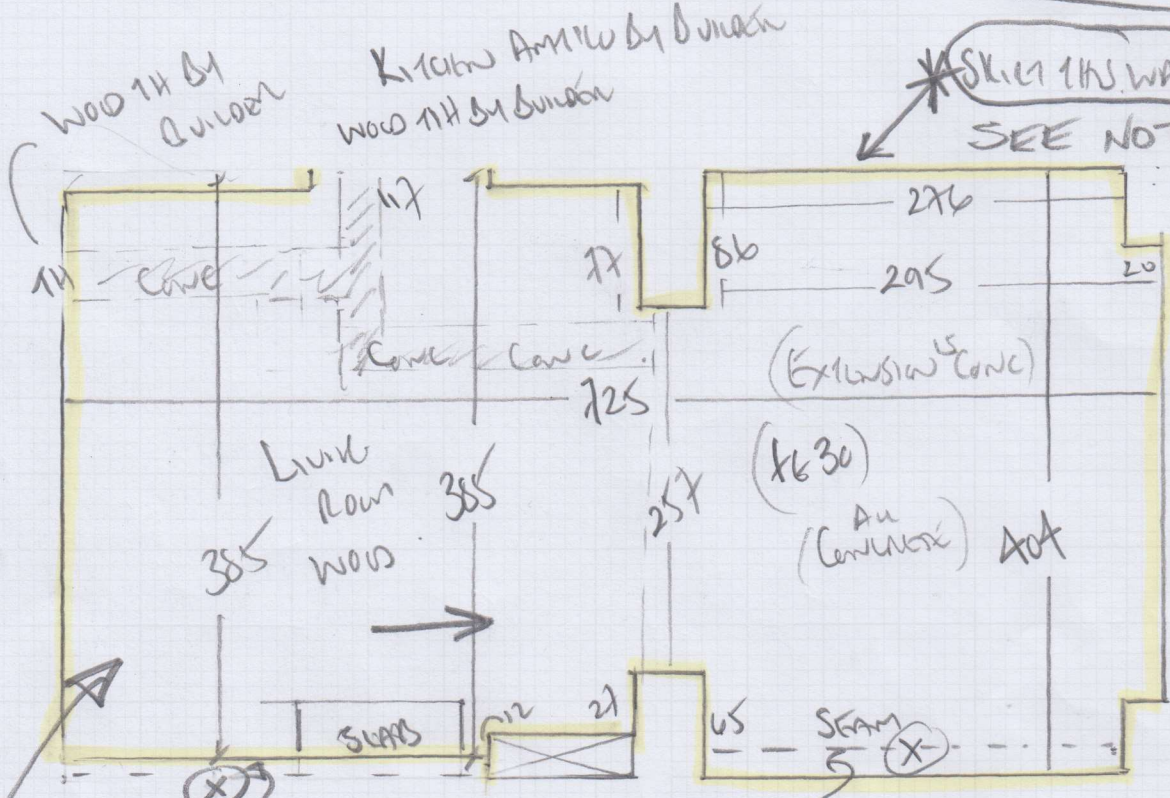 WOOD TH BY
BUILDER
KITCHEN
BY BUILDER
WOOD TH BY BUILDER
SKIRT THIS WA
SEE NOT
117
276
17
86
295
20
TH
CONC
CONC
CONC
(EXTENSION IS CONC)
725
LIVING
ROOM
WOOD
385
385
257
404
(CONCRETE)
SLABS
12
27
65
SEAM
X
X